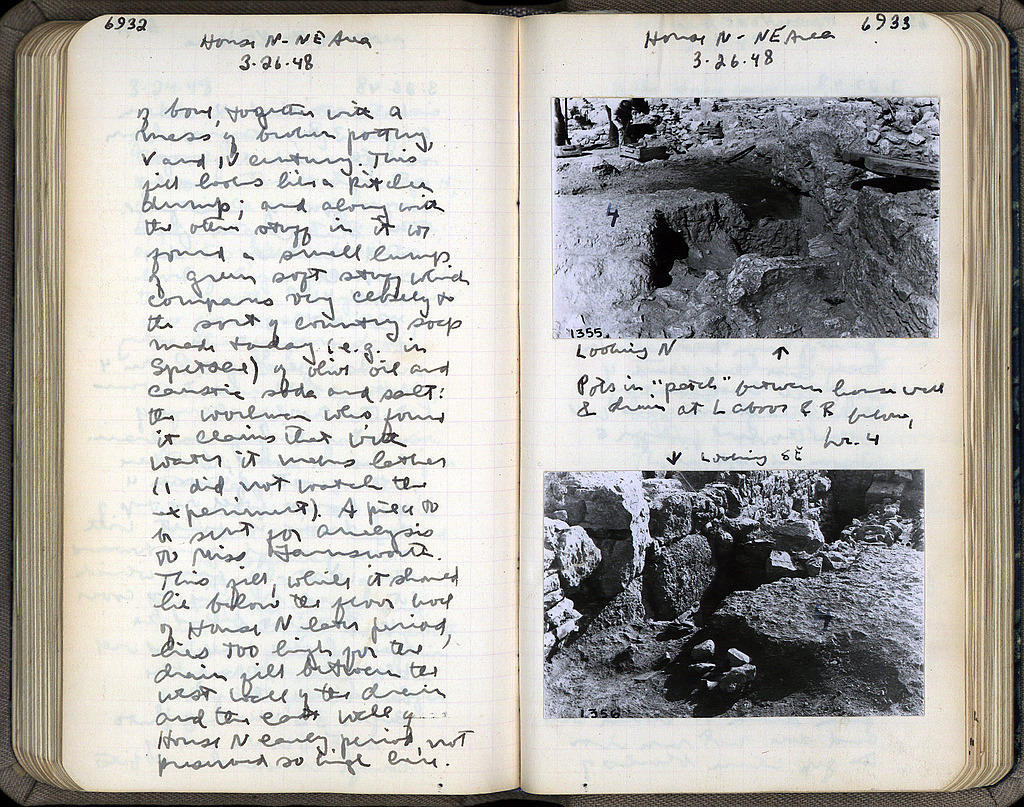 6932
House N - NE Area
3.26.48
of bone, together with a
mess of broken pottery,
V and IV century. This
fill looks like a kitchen
dump; and along with
the other stuff in it we
found a small lump
of green soft stuff which
compares very closely to
the sort of country soap
made today (e.g. in
Spetsai) of olive oil and
caustic soda and salt:
the workman who found
it claims that with
water it makes lather
(I did not watch the
experiment). A piece to
be sent for analysis
to Miss Farnsworth.
This fill, while it should
lie below the floor level
of House N later period,
lies too high for the
drain fill between the
west wall of the drain
and the east wall of
House N early period, not
preserved so high here.
6933
House N - NE Area
3.26.48
4
1355
Looking N ↑
Pots in "patch" between house wall
& drain at L above & R below,
hr. 4
↓ Looking SE
4
1356